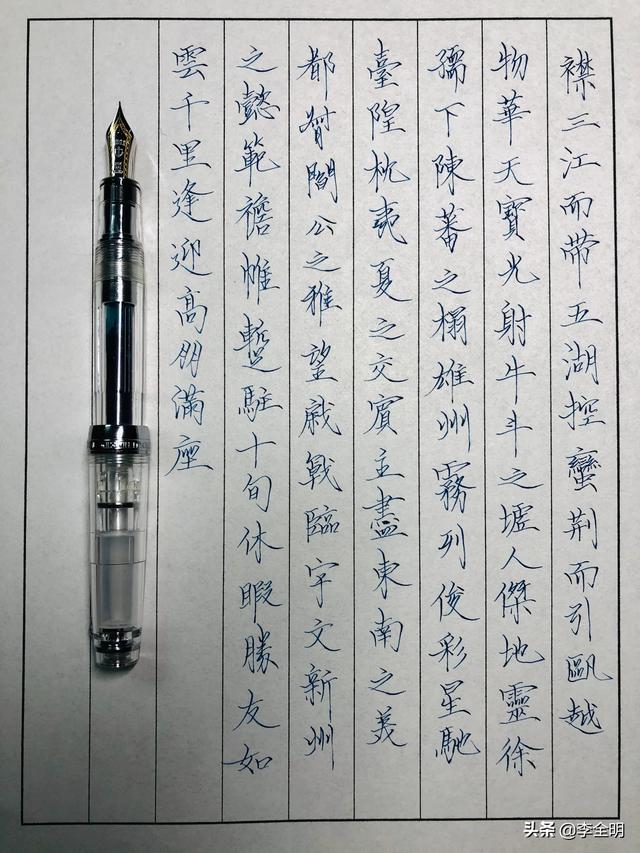 襟三江而带五湖控蠻荆而引甌越
物華天寶光射牛斗之墟人傑地靈徐
孺下陳蕃之榻雄州霧列俊彩星馳
臺隍枕夷夏之交賓主盡東南之美
都督閻公之雅望棨戟臨宇文新州
之懿範襜帷暫駐十旬休暇勝友如
雲千里逢迎高朋滿座
头条 @李全明